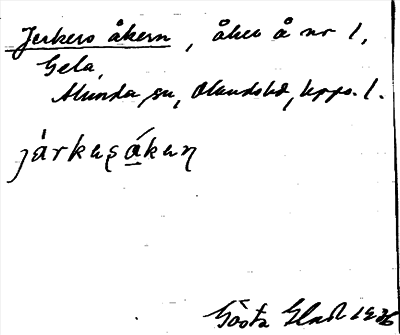 Jerkers åkern, åker å nr 1,
Gela,
Alunda sn, Olands hd, Upps. l.
järkesåkeɳ
Gösta Elad 1936